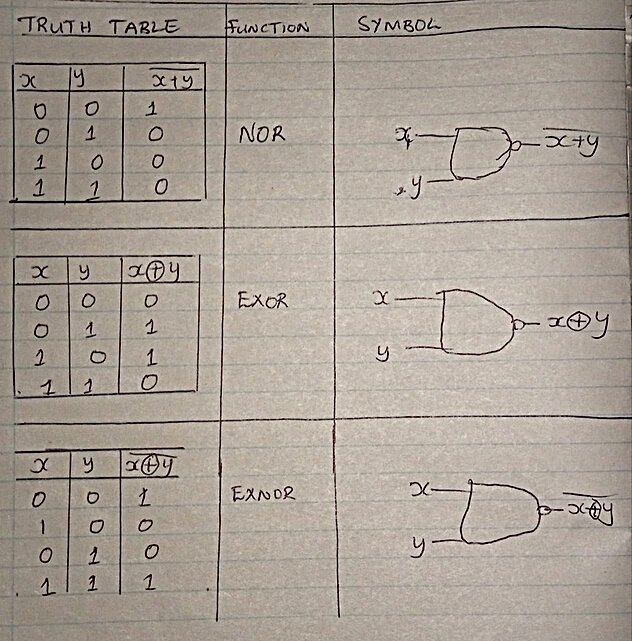 TRUTH TABLE FUNCTION SYMBOL
x y x̅+̅y̅
0 0 1
0 1 0
1 0 0
1 1 0
NOR
x
y
x̅+̅y̅
x y x⊕y
0 0 0
0 1 1
1 0 1
1 1 0
EXOR
x
y
x⊕y
x y x̅⊕̅y̅
0 0 1
1 0 0
0 1 0
1 1 1
EXNOR
x
y
x̅⊕̅y̅